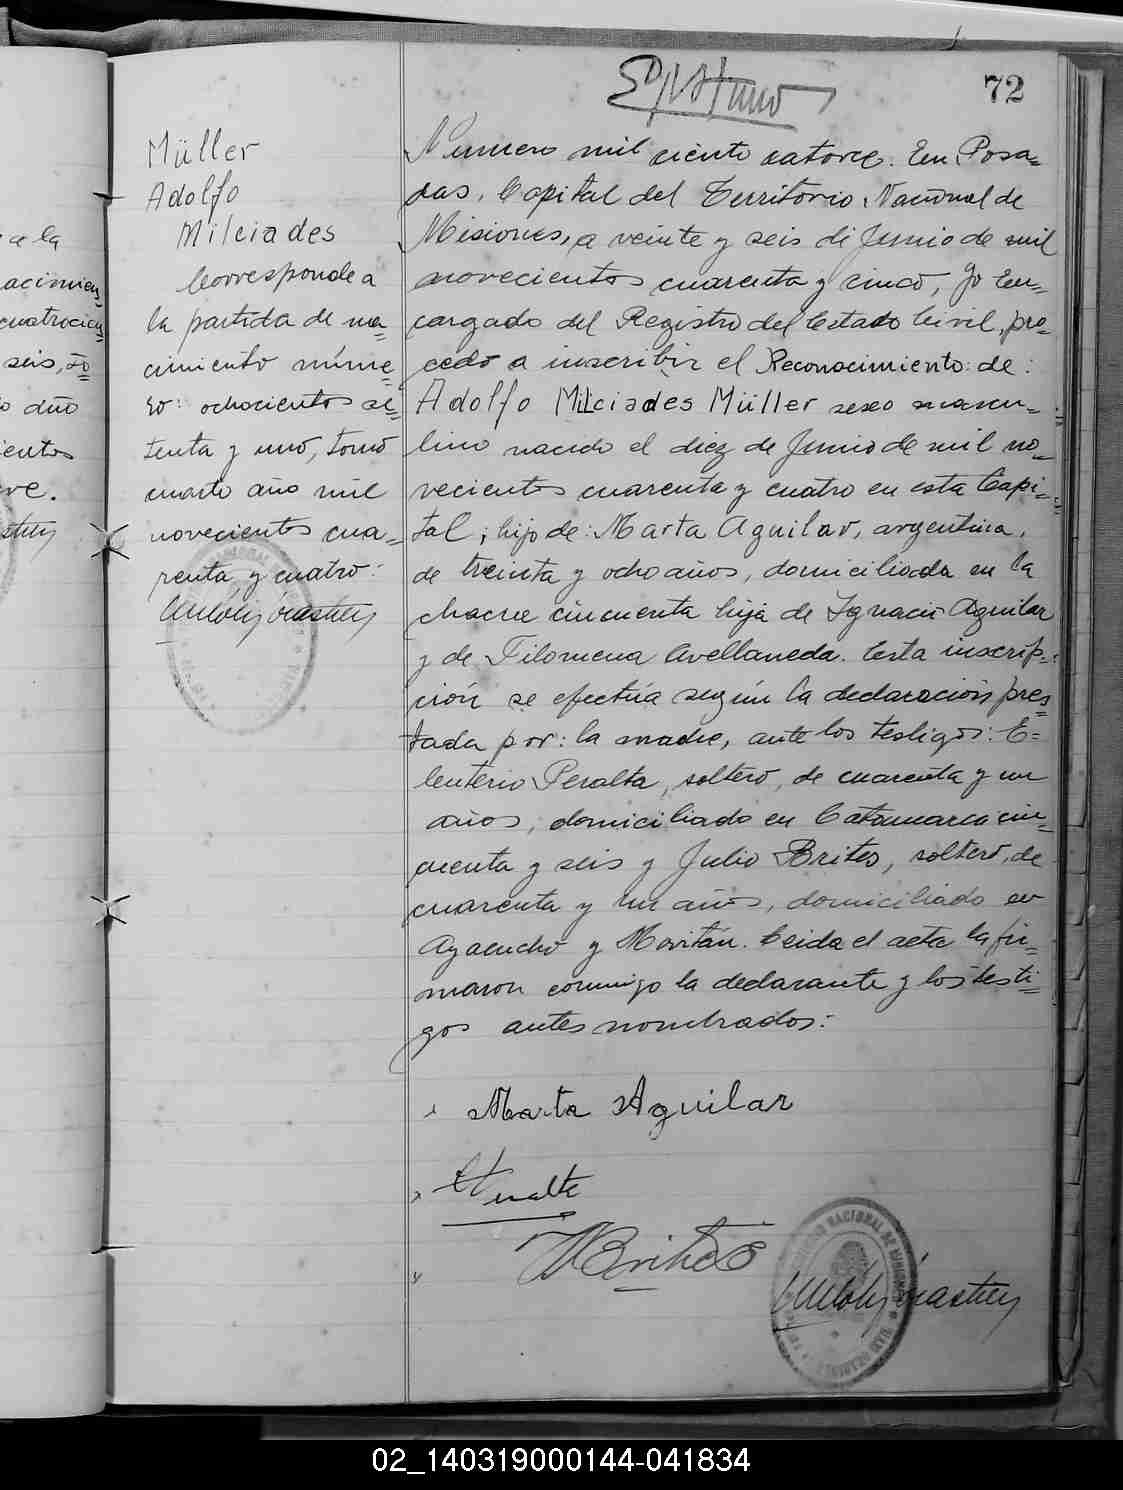 72
Müller
Adolfo
Milciades
Corresponde a
la partida de na=
cimiento núme=
ro: ochocientos se=
tenta y uno, tomo
cuarto año mil
novecientos cua=
renta y cuatro:
Numero mil ciento catorce. En Posa=
das, Capital del Territorio Nacional de
Misiones, a veinte y seis de Junio de mil
novecientos cuarenta y cinco, Yo En=
cargado del Registro del Estado Civil, pro=
cedo a inscribir el Reconocimiento: de:
Adolfo Milciades Müller sexo mascu=
lino nacido el diez de Junio de mil no=
vecientos cuarenta y cuatro en esta Capi=
tal; hijo de: Marta Aguilar, argentina,
de treinta y ocho años, domiciliada en la
chacra cincuenta hija de Ignacio Aguilar
y de Filomena Avellaneda. Esta inscrip=
ción se efectúa según la declaración pres=
tada por: la madre, ante los testigos: E=
leuterio Peralta, soltero, de cuarenta y un
años, domiciliado en Catamarca cin=
cuenta y seis y Julio Brites, soltero, de
cuarenta y un años, domiciliado en
Ayacucho y Moritán. Leida el acta la fir=
maron conmigo la declarante y los testi=
gos antes nombrados:
Marta Aguilar
Brites
a la
acimien=
cuatrocien=
seis, to=
o dño
ientos
ve.
02_140319000144-041834